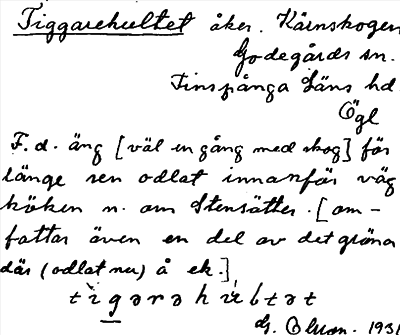 Tiggarehultet åker. Kårnskogen
Godegårds sn.
Finspånga Läns hd.
Ögl
F.d. äng [väl en gång med skog] för
länge sen odlat innanför väg
kröken n. om Stensätter. [om-
fattar även en del av det gröna
där (odlat nu) å ek.]
tìgarəhúltət
G. Olson. 1931